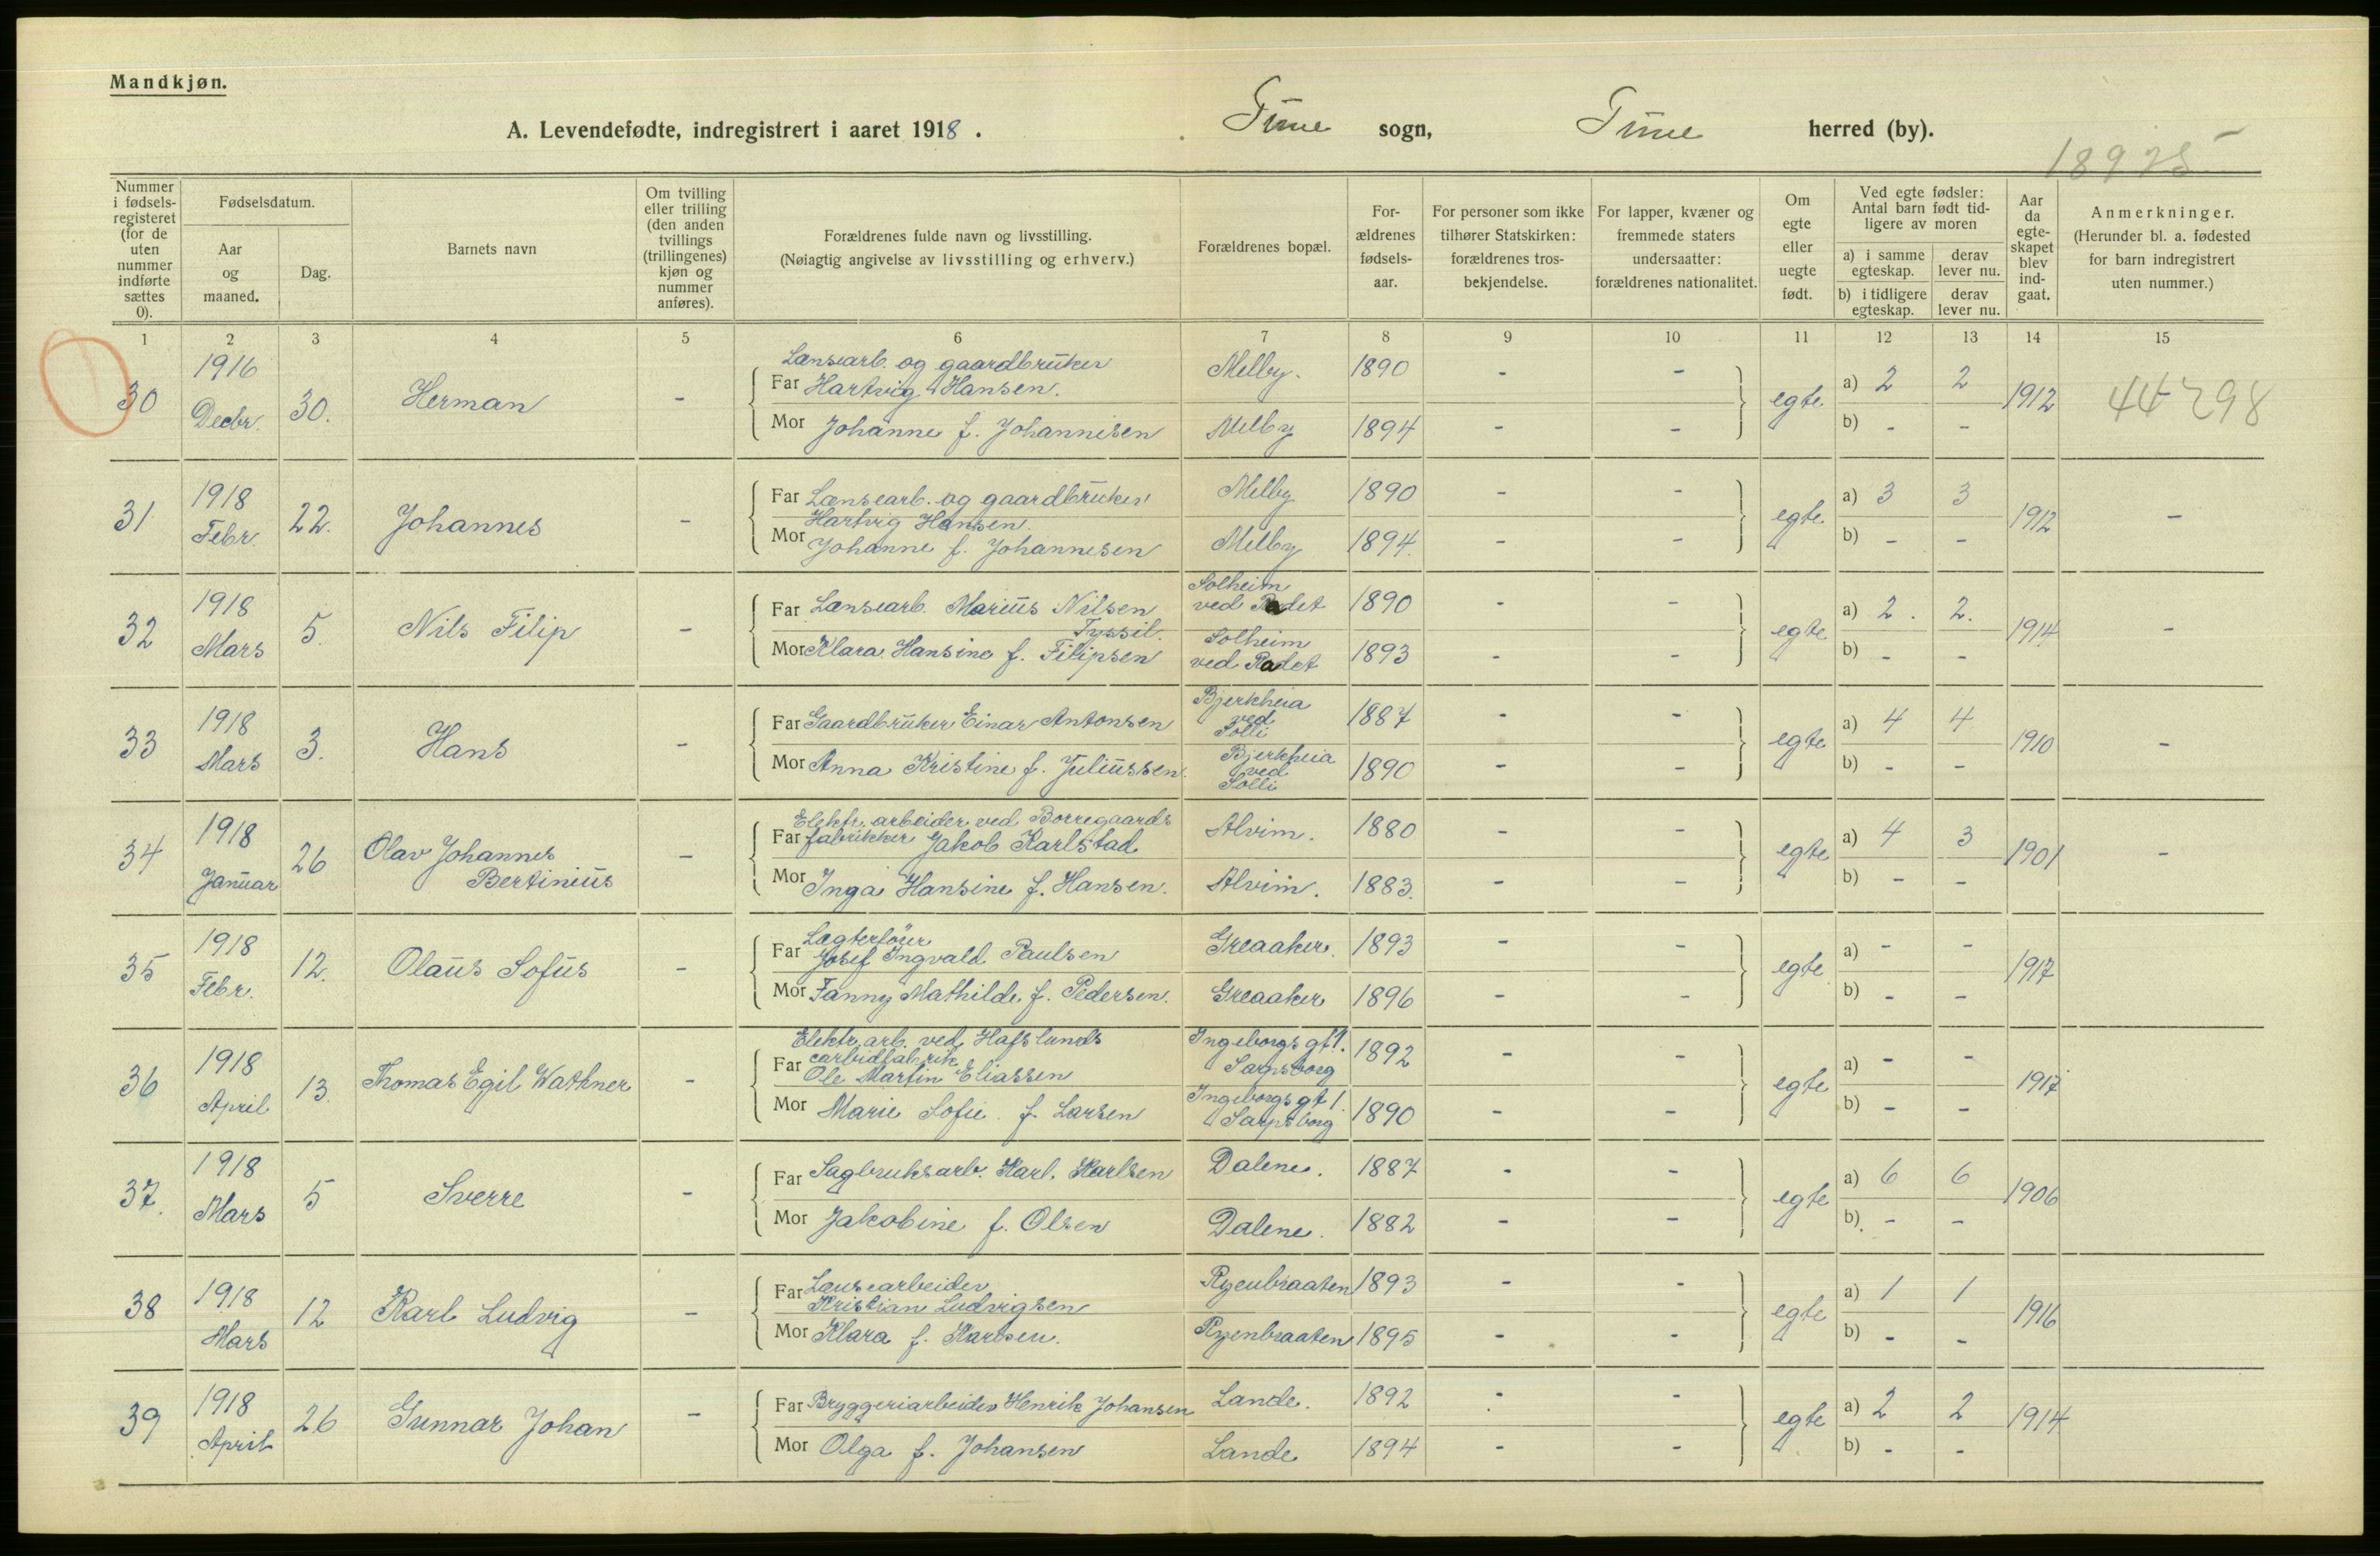 Mandkjøn.
A. Levendefødte, indregistrert i aaret 1918.
Tune sogn, Tune herred (by).
18925
Nummer i fødsels-registeret (for de uten nummer indførte sættes 0).
Fødselsdatum.
Aar og maaned.
Dag.
Barnets navn
Om tvilling eller trilling (den anden tvillings (trillingenes) kjøn og nummer anføres).
Forældrenes fulde navn og livsstilling.
(Nøiagtig angivelse av livsstilling og erhverv.)
Forældrenes bopæl.
For-ældrenes fødsels-aar.
For personer som ikke tilhører Statskirken: forældrenes tros-bekjendelse.
For lapper, kvæner og fremmede staters undersaatter: forældrenes nationalitet.
Om egte eller uegte født.
Ved egte fødsler: Antal barn født tid-ligere av moren
a) i samme egteskap.
derav lever nu.
b) i tidligere egteskap.
derav lever nu.
Aar da egte-skapet blev ind-gaat.
Anmerkninger.
(Herunder bl. a. fødested for barn indregistrert uten nummer.)
1 2 3 4 5 6 7 8 9 10 11 12 13 14 15
30 1916 Decbr. 30. Herman -
Lænsearb. og gaardbruker
Far Hartvig Hansen. Melby. 1890 - -
Mor Johanne f. Johannesen Melby 1894 - -
egte a) 2 2 b) - - 1912 44298
31 1918 Febr. 22. Johannes -
Far Lænsearb. og gaardbruker
Hartvig Hansen. Melby 1890 - -
Mor Johanne f. Johannesen Melby 1894. - -
egte a) 3 3 b) - - 1912 -
32 1918 Mars 5. Nils Filip -
Far Lænsearb. Marius Nilsen Solheim ved Radet 1890 - -
Tyssil.
Mor Klara Hansine f. Filipsen Solheim ved Radet 1893 - -
egte a) 2. 2. b) - - 1914 -
33 1918 Mars 3. Hans -
Far Gaardbruker Einar Antonsen Bjerkheia ved Solli 1887 - -
Mor Anna Kristine f. Juliussen. Bjerkheia ved Solli 1890 - -
egte a) 4 4 b) - - 1910 -
34 1918 Januar 26 Olav Johannes Bertinius -
Elektr. arbeider ved Borregaards
Far fabrikker Jakob Karlstad Alvim. 1880 - -
Mor Inga Hansine f. Hansen. Alvim. 1883. - -
egte a) 4 3 b) - - 1901 -
35 1918 Febr. 12. Olaus Sofus -
Far Lægterfour
Josef Ingvald Paulsen Greaaker. 1893 - -
Mor Fanny Mathilde f. Pedersen. Greaaker 1896 - -
egte a) - - b) - - 1917
36 1918 April 13. Thomas Egil Wathner -
Elektr. arb. ved Hafslunds
Far carbidfabrik
Ole Martin Eliassen Ingeborgs gt 1. Sarpsborg 1892 - -
Mor Marie Sofie f. Larsen Ingeborgs gt 1. Sarpsborg 1890 - -
egte a) - - b) - - 1917
37. 1918 Mars 5 Sverre -
Far Sagbruksarb. Karl. Karlsen Dalene. 1887 - -
Mor Jakobine f. Olsen Dalene. 1882 - -
egte a) 6 6 b) - - 1906
38 1918 Mars 12 Karl Ludvig -
Far Lænsearbeider
Kristian Ludvigsen Ryenbraaten 1893 - -
Mor Klara f. Karlsen. Ryenbraaten 1895 - -
egte a) 1 1 b) - - 1916
39 1918 April 26 Gunnar Johan -
Far Bryggeriarbeider Henrik Johansen Lande. 1892 - -
Mor Olga f. Johansen Lande 1894 - -
egte a) 2 2 b) - - 1914